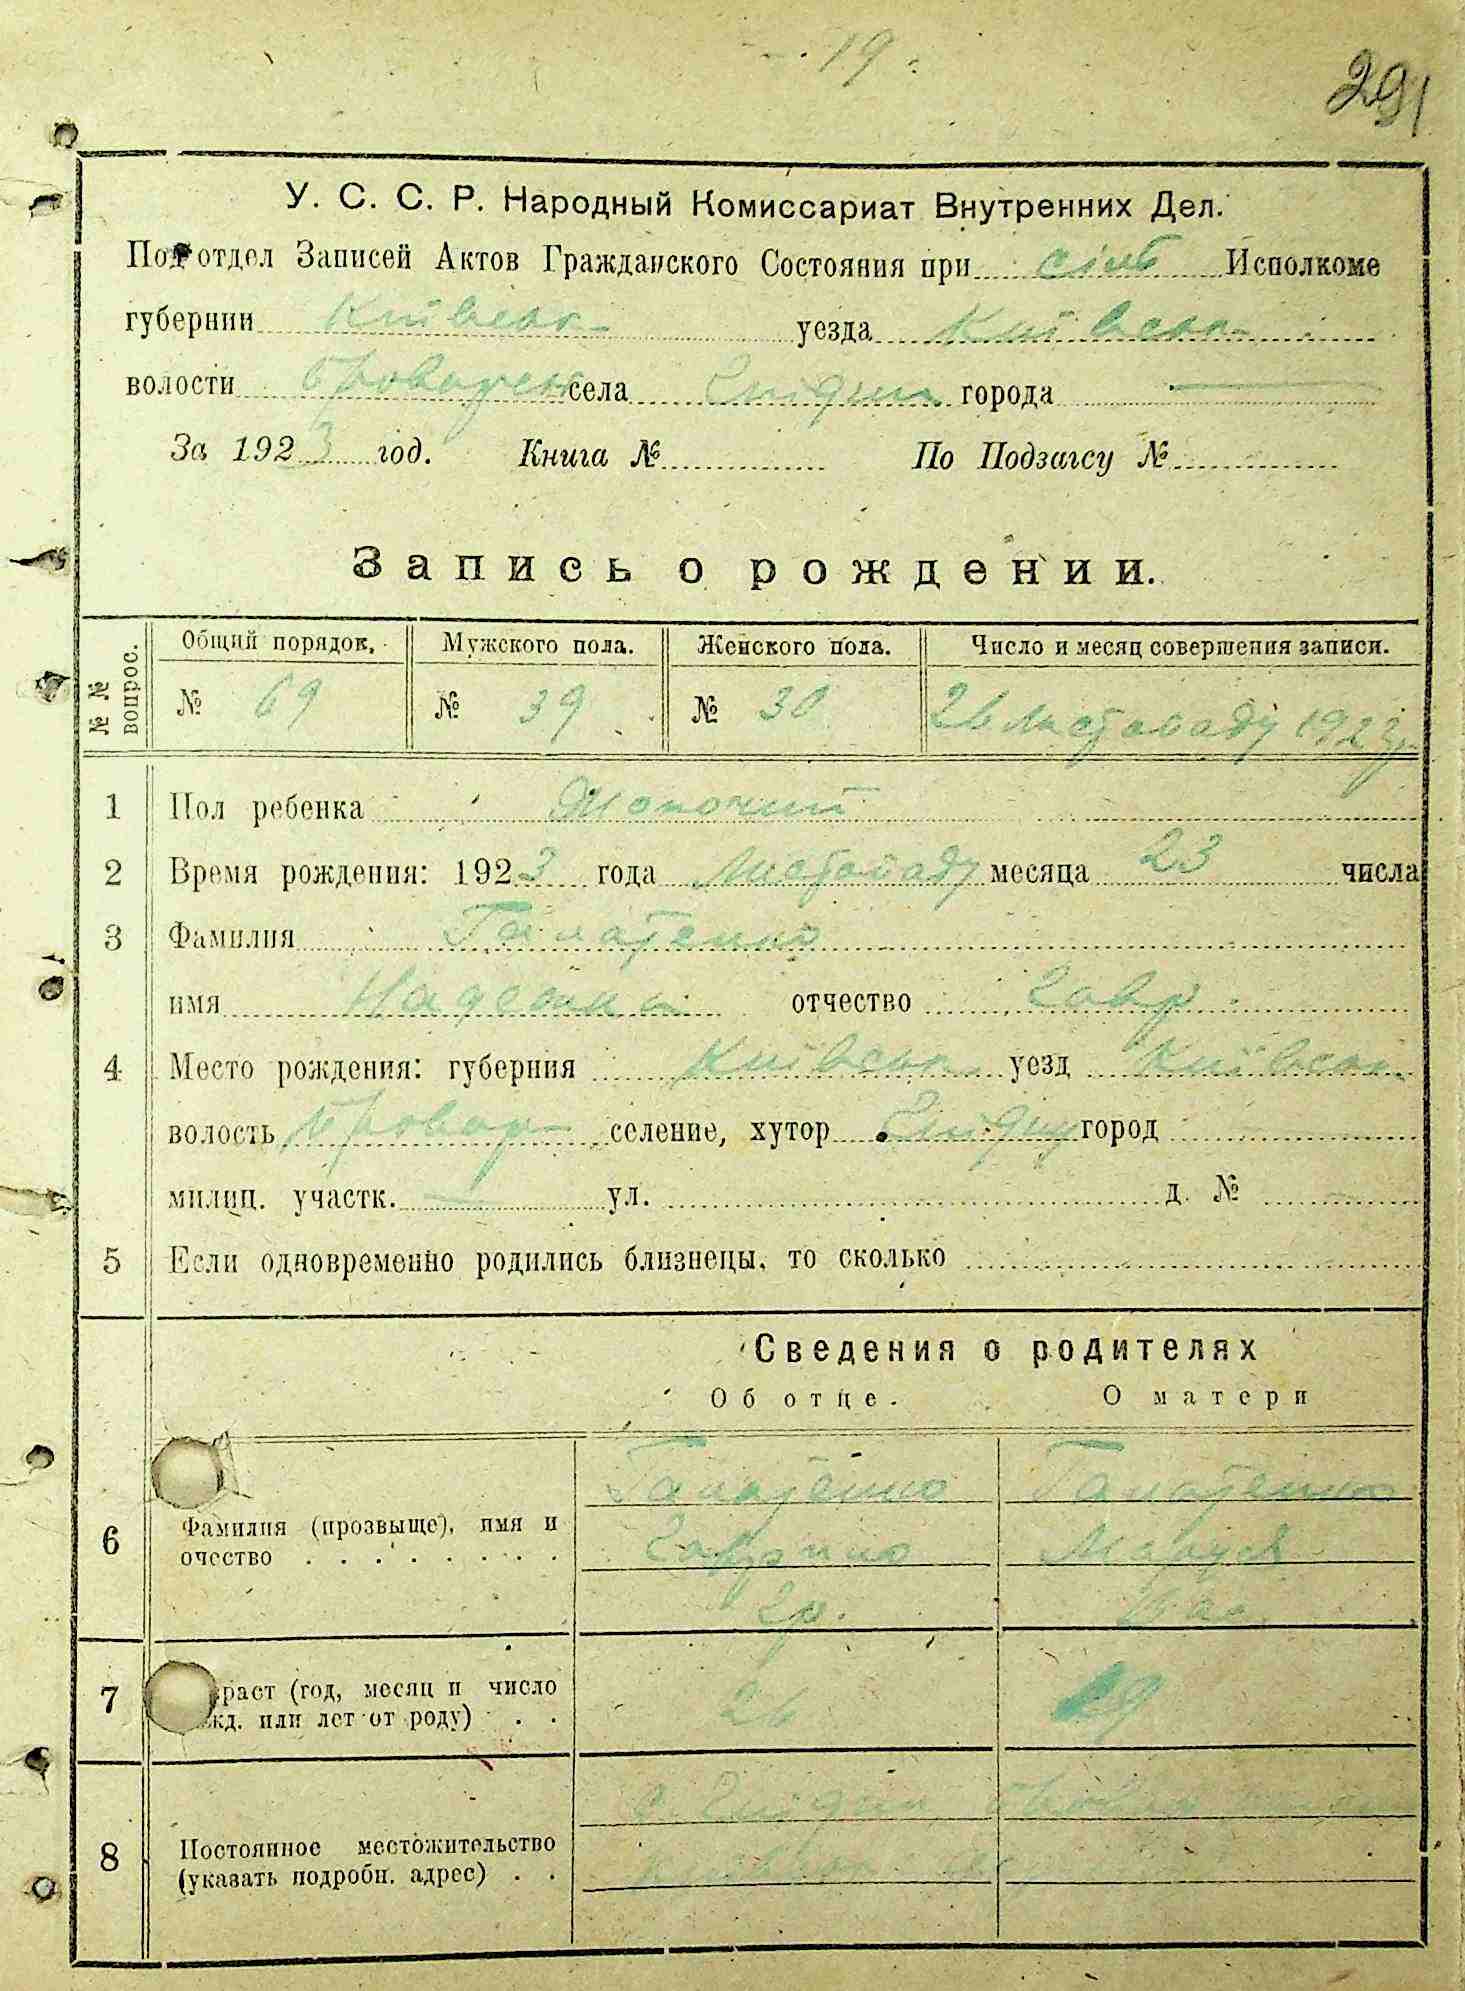 19
291
У. С. С. Р. Народный Комиссариат Внутренних Дел.
Подотдел Записей Актов Гражданского Состояния при сільб Исполкоме
губернии Київськ уезда Київськ
волости Броварськ села Гнідин города
За 1923 год. Книга № По Подзагсу №
Запись о рождении.
№ № вопрос. Общий порядок. Мужского пола. Женского пола. Число и месяц совершения записи.
№ 69 № 39 № 30 26 Листопаду 1923 р
1 Пол ребенка Жоночий
2 Время рождения: 1923 года Листопаду месяца 23 числа
3 Фамилия Галатенко
имя Надежда отчество Гавр.
4 Место рождения: губерния Київськ уезд Київськ
волость Бровар селение, хутор Гнідин город
милиц. участк. ул. д. №
5 Если одновременно родились близнецы, то сколько
Сведения о родителях
Об отце. О матери
6 Фамилия (прозвыще), имя и очество Галатенко Галатенко
Гаврило Маруся
Гр.
7 раст (год, месяц и число жд. или лет от роду) 26 29
8 Постоянное местожительство (указать подробн. адрес) с. Гнідин